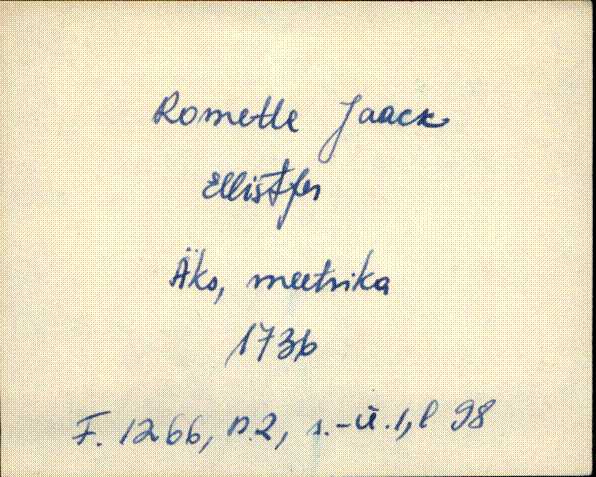 Rometle Jaack
Ellistfer
Äks, meetrika
1736
F. 1266, n.2, s.-ü.1, l 98